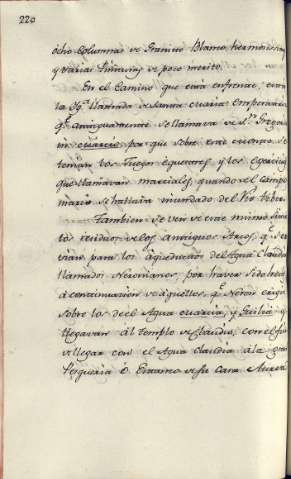 220
ocho columnas de Granito Blanco, hermosissimas
y varias Pinturas de poco merito.
En el Camino que está enfrente, está
la Yg.ª llamada de Santa Maria
q.e antiguamente se llamava de S.n Grego
in Marcio, por que sobre este
tenian los Juegos Equestres, y los
que llamavan marciales, quando el Campo
marcio se hallava inundado del Rio Tiber.
Tambien se ven de este mismo
los residuos de los antiguos Arcos, q.e
vian para los aqueductos del Agua Claudia
llamados Neronianos, por haver sido hechos
á continuacion de aquellos, q.e Neron erigió
sobre los de el Agua Marcia, y Julia y
llegavan ál templo de Claudio, con el fin
de llegar con el Agua Claudia á la gran
Pesqueria ó Estanno de su Casa Aurea